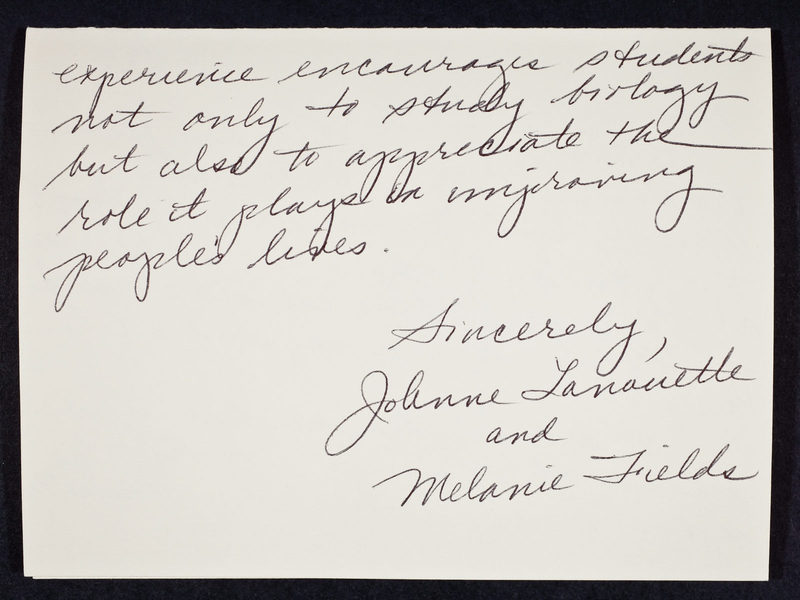 experience encourages students
not only to study biology
but also to appreciate the
role it plays in improving
people's lives.
Sincerely,
JoAnne Lanouette
and
Melanie Fields